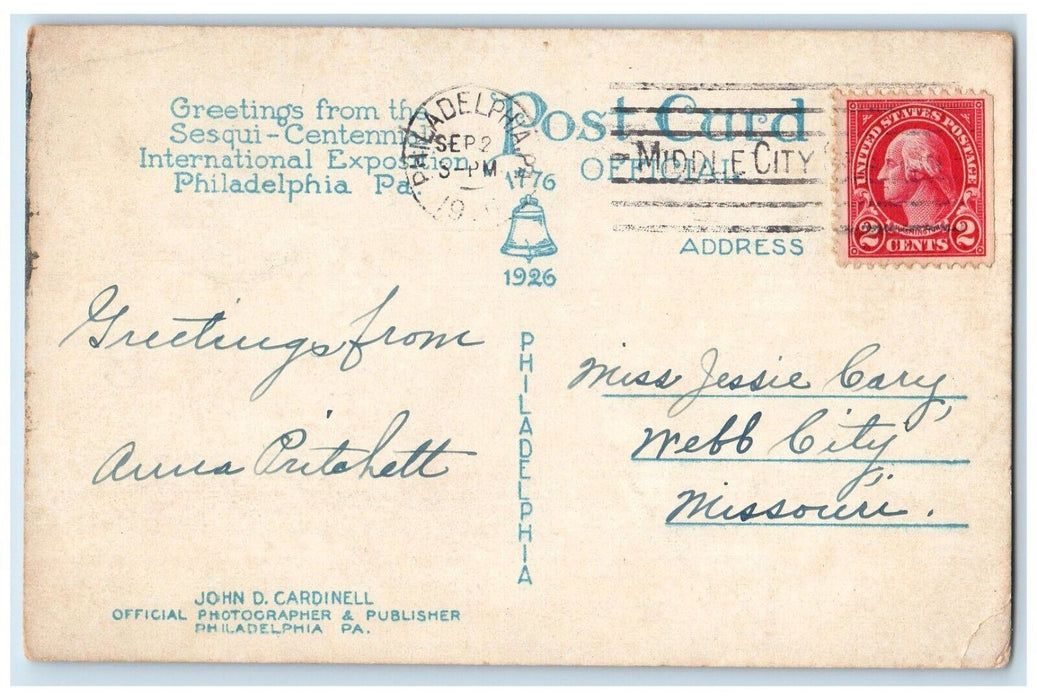 Greetings from the
Sesqui-Centennial
International Exposition
Philadelphia Pa.
PHILADELPHIA, PA.
SEP 2
3-PM
Post Card
OFFICIAL
MIDDLE CITY
1776
1926
ADDRESS
UNITED STATES POSTAGE
WASHINGTON
2 CENTS 2
Greetings from
Anna Pritchett
PHILADELPHIA
Miss Jessie Cary,
Webb City,
Missouri.
JOHN D. CARDINELL
OFFICIAL PHOTOGRAPHER & PUBLISHER
PHILADELPHIA PA.